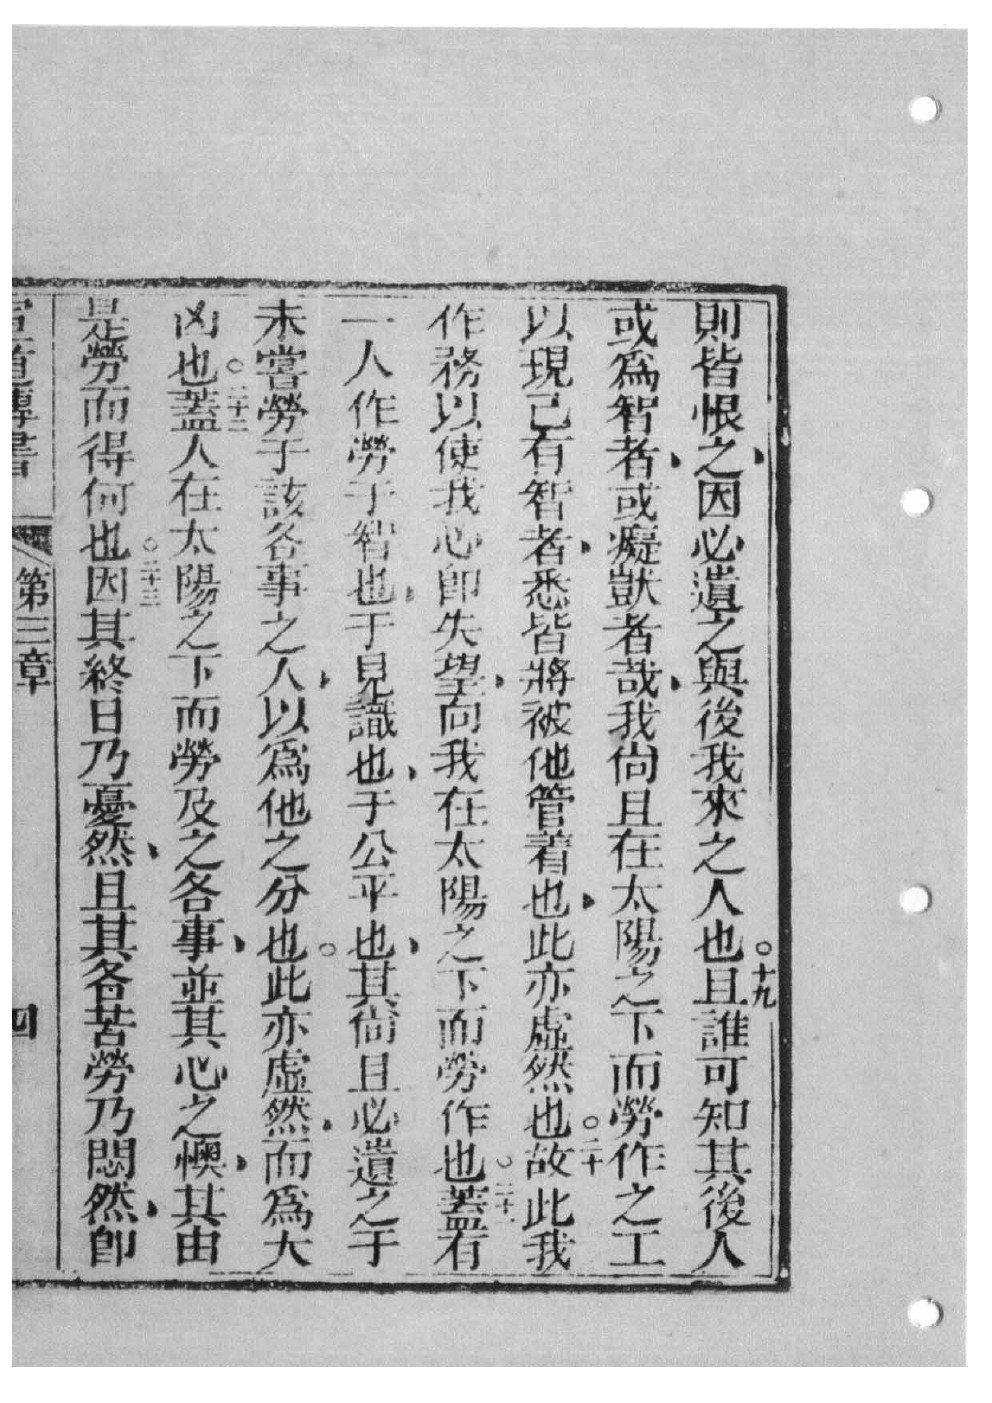 則皆恨之、因必遺之與後我來之人也。十九且誰可知其後人
或爲智者、或癡獃者哉、我尙且在太陽之下而勞作之工
以現己有智者、悉皆將被他管着也、此亦虛然也。二十故此我
作務以使我心卽失望、向我在太陽之下而勞作也。二十一蓋有
一人作勞于智也、于見識也、于公平也、其尙且必遺之于
未嘗勞于該各事之人、以爲他之分也。此亦虛然、而爲大
凶也。二十二蓋人在太陽之下而勞及之各事、並其心之懊、其由
是勞而得何也。二十三因其終日乃憂然、且其各苦勞乃悶然、卽
宣道傳書 第三章 四